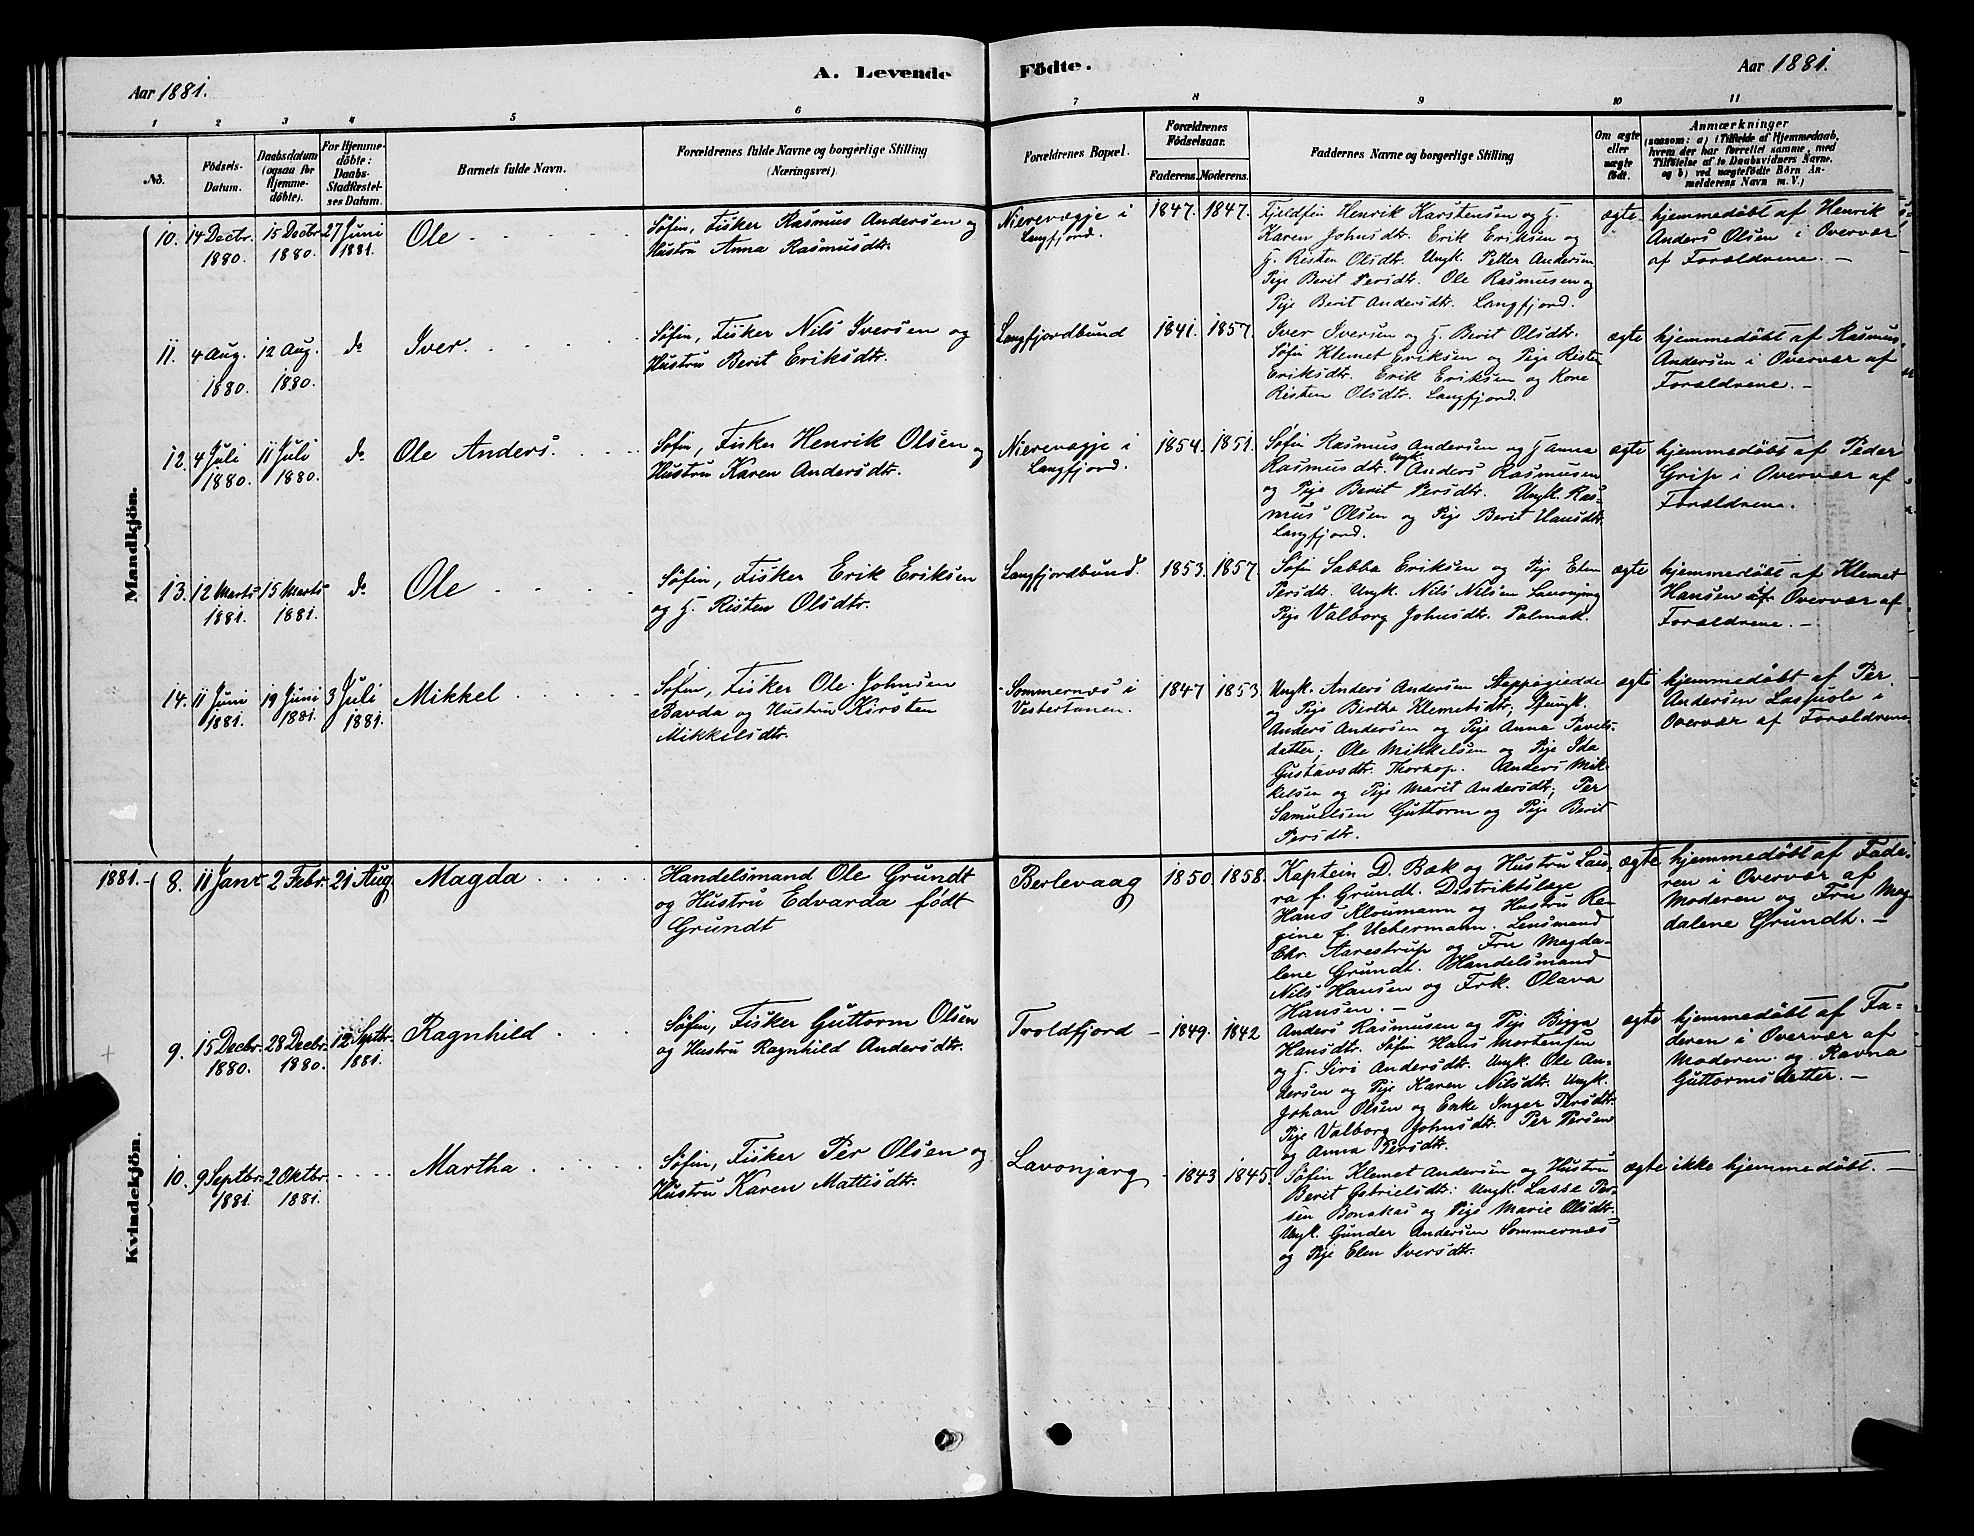 Aar 1881.
A. Levende Födte.
Aar 1881.
1 2 3 4 5 6 7 8 9 10 11
No.
Födsels-Datum.
Daabsdatum (ogsaa for Hjemmedöbte).
For Hjemmedöbte: Daabs-Stadfæstelses Datum.
Barnets fulde Navn.
Forældrenes fulde Navne og borgerlige Stilling (Næringsvei).
Forældrenes Bopæl.
Forældrenes Födselsaar.
Faderens. Moderens.
Faddernes Navne og borgerlige Stilling
Om ægte eller uægte födt.
Anmærkninger
(saasom: a) i Tilfælde af Hjemmedaab,
hvem der har forrettet samme, med
Tilföielse af to Daabsvidners Navne.
og b) ved uægtefödte Börn An-
melderens Navn m. V.)
Mandkjön.
10. 14 Decbr. 1880. 15 Decbr. 1880. 27 Juni 1881. Ole
Søfin, Fisker Rasmus Andersen og
Hustru Anna Rasmusdtr.
Nierevægje i
Langfjord.
1847. 1847.
Fjeldfin Henrik Karstensen og H.
Karen Johnsdtr. Erik Eriksen og
H. Risten Olsdtr. Ungk. Petter Andersen
Pige Berit Persdtr. Ole Rasmusen og
Pige Berit Andersdtr. Langfjord.
ægte
hjemmedøbt af Henrik
Anders Olsen i Overvær
af Forældrene. —
11. 4 Aug. 1880. 12 Aug. 1880. do Iver.
Søfin, Fisker Nils Iversen og
Hustru Berit Eriksdtr.
Langfjordbund
1841. 1857.
Iver Iversen og H. Berit Olsdtr.
Søfin Klemet Eriksen og Pige Risten
Eriksdtr. Erik Eriksen og Kone
Risten Olsdtr. Langfjord.
ægte
hjemmedøbt af Rasmus
Andersen i Overvær af
Forældrene. —
12. 4 Juli 1880. 11 Juli 1880. do Ole Anders.
Søfin, Fisker Henrik Olsen og
Hustru Karen Andersdtr.
Nierevægje i
Langfjord.
1854. 1851.
Søfin Rasmus Andersen og H Anna
Rasmusdtr. Ungk. Anders Rasmusen
og Pige Berit Persdtr. Ungk. Ras-
mus Olsen og Pige Berit Hansdtr.
Langfjord.
ægte
hjemmedøbt af Peder
Grip i Overvær af
Forældrene.
13. 12 Marts 1881. 15 Marts 1881. do Ole
Søfin, Fisker Erik Eriksen
og H. Risten Olsdtr.
Langfjordbund.
1853. 1857.
Søfin Sabba Eriksen og Pige Elen
Persdtr. Ungk. Nils Nilsen Lavonjarg
Pige Valborg Johnsdtr. Polmak.
ægte
hjemmedøbt af Klemet
Hansen i Overvær af
Forældrene. —
14. 11 Juni 1881. 19 Juni 1881. 3 Juli 1881. Mikkel
Søfin, Fisker Ole Johnsen
Bavda og Hustru Kirsten
Mikkelsdtr.
Sommernæs i
Vestertanen.
1847 1853.
Ungk. Anders Andersen Steppogiedde
og Pige Birthe Klemetsdtr; Ungk.
Anders Andersen og Pige Anna Pavels-
datter; Ole Mikkelsen og Pige Ida
Gustavsdtr. Thorkop. Anders Mik-
kelsen og Pige Marit Andersdtr; Per
Samuelsen Guttorm og Pige Berit
Persdtr.
ægte
hjemmedøbt af Per
Andersen Lasjuole i
Overvær af Forældrene
Kvindekjön.
1881. – 8. 11 Janr 2 Febr. 21 Aug. Magda
Handelsmand Ole Grundt
og Hustru Edvarda født
Grundt
Berlevaag
1850. 1858.
Kaptein D. Bæk og Hustru Lau-
ra f. Grundt. Distriktslæge
Hans Kloumann og Hustru Re-
gine f. Uckermann. Lensmand
Chr. Aarestrup og Fru Magda-
lene Grundt. Handelsmand
Nils Hansen og Frk. Olava
Hansen. —
ægte
hjemmedøbt af Fade-
ren i Overvær af
Moderen og Fru Mag-
dalene Grundt. —
9. 15 Decbr. 1880. 28 Decbr. 1880. 12 Septbr. 1881. Ragnhild
Søfin, Fisker Guttorm Olsen
og Hustru Ragnhild Andersdtr.
Troldfjord –
1849. 1842
Anders Rasmusen og Pige Bigga
Hansdtr. Søfin Hans Mortensen
og H. Siri Andersdtr. Ungk. Ole An-
dersen og Pige Karen Nilsdtr. Ungk.
Johan Olsen og Enke Inger Persdtr.
Pige Valborg Johnsdtr. Per Persen
og Anna Persdtr.
ægte
hjemmedøbt af Fa-
deren i Overvær af
Moderen og Ravna
Guttormsdatter. —
10. 9 Septbr. 1881. 2 Oktbr. 1881. Martha
Søfin, Fisker Per Olsen og
Hustru Karen Mattisdtr.
Lavonjarg
1843 1845.
Søfin Klemet Andersen og Hustru
Berit Gabrielsdtr: Ungk. Lasse Per-
sen Bonakas og Pige Marie Olsdtr.
Ungk. Gunder Andersen Sommernæs
og Pige Elen Iversdtr.
ægte
ikke hjemmedøbt. —